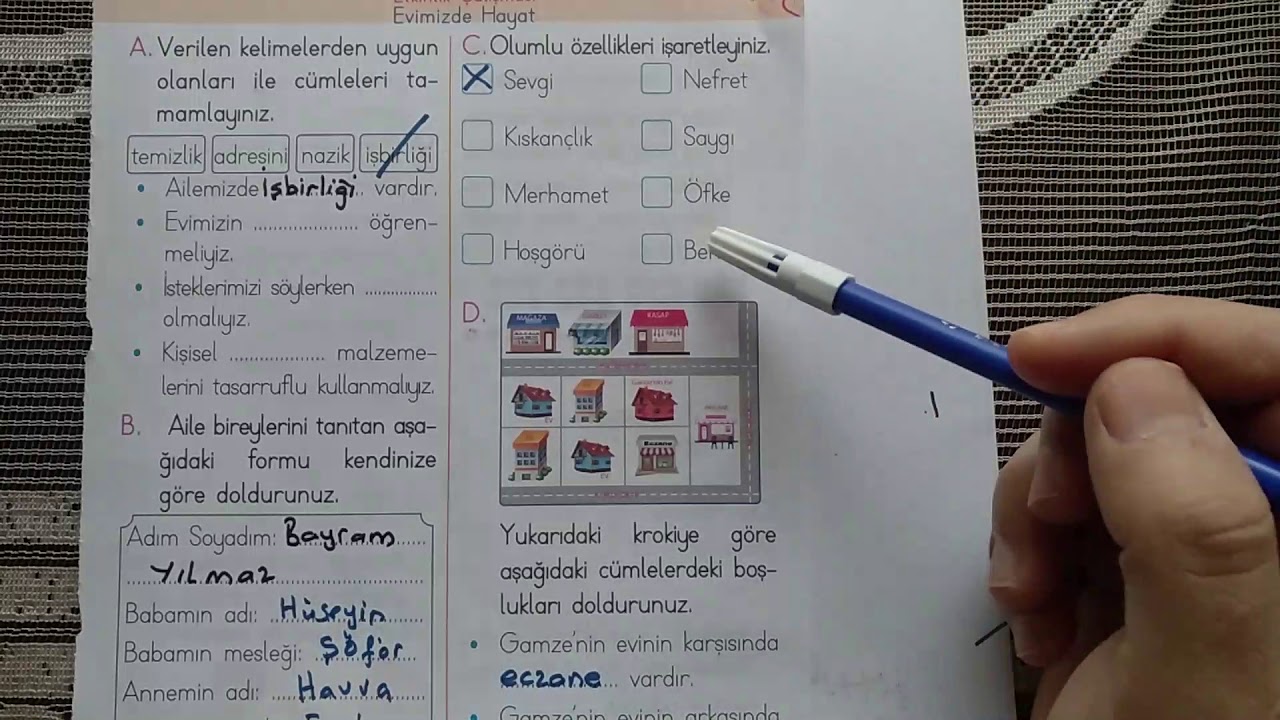 Evimizde Hayat
A. Verilen kelimelerden uygun
olanları ile cümleleri ta-
mamlayınız.
temizlik adresini nazik işbirliği
• Ailemizde işbirliği.. vardır.
• Evimizin ..................... öğren-
meliyiz.
• İsteklerimizi söylerken ................
olmalıyız.
• Kişisel ................... malzeme-
lerini tasarruflu kullanmalıyız.
B. Aile bireylerini tanıtan aşa-
ğıdaki formu kendinize
göre doldurunuz.
Adım Soyadım: Bayram
YILMAZ
Babamın adı: Hüseyin
Babamın mesleği: Şöför
Annemin adı: Havva
C. Olumlu özellikleri işaretleyiniz.
Sevgi Nefret
Kıskançlık Saygı
Merhamet Öfke
Hoşgörü
D.
MAĞAZA KASAP
EV
Eczane
EV
Yukarıdaki krokiye göre
aşağıdaki cümlelerdeki boş-
lukları doldurunuz.
• Gamze'nin evinin karşısında
eczane... vardır.
• Gamze'nin evinin arkasında